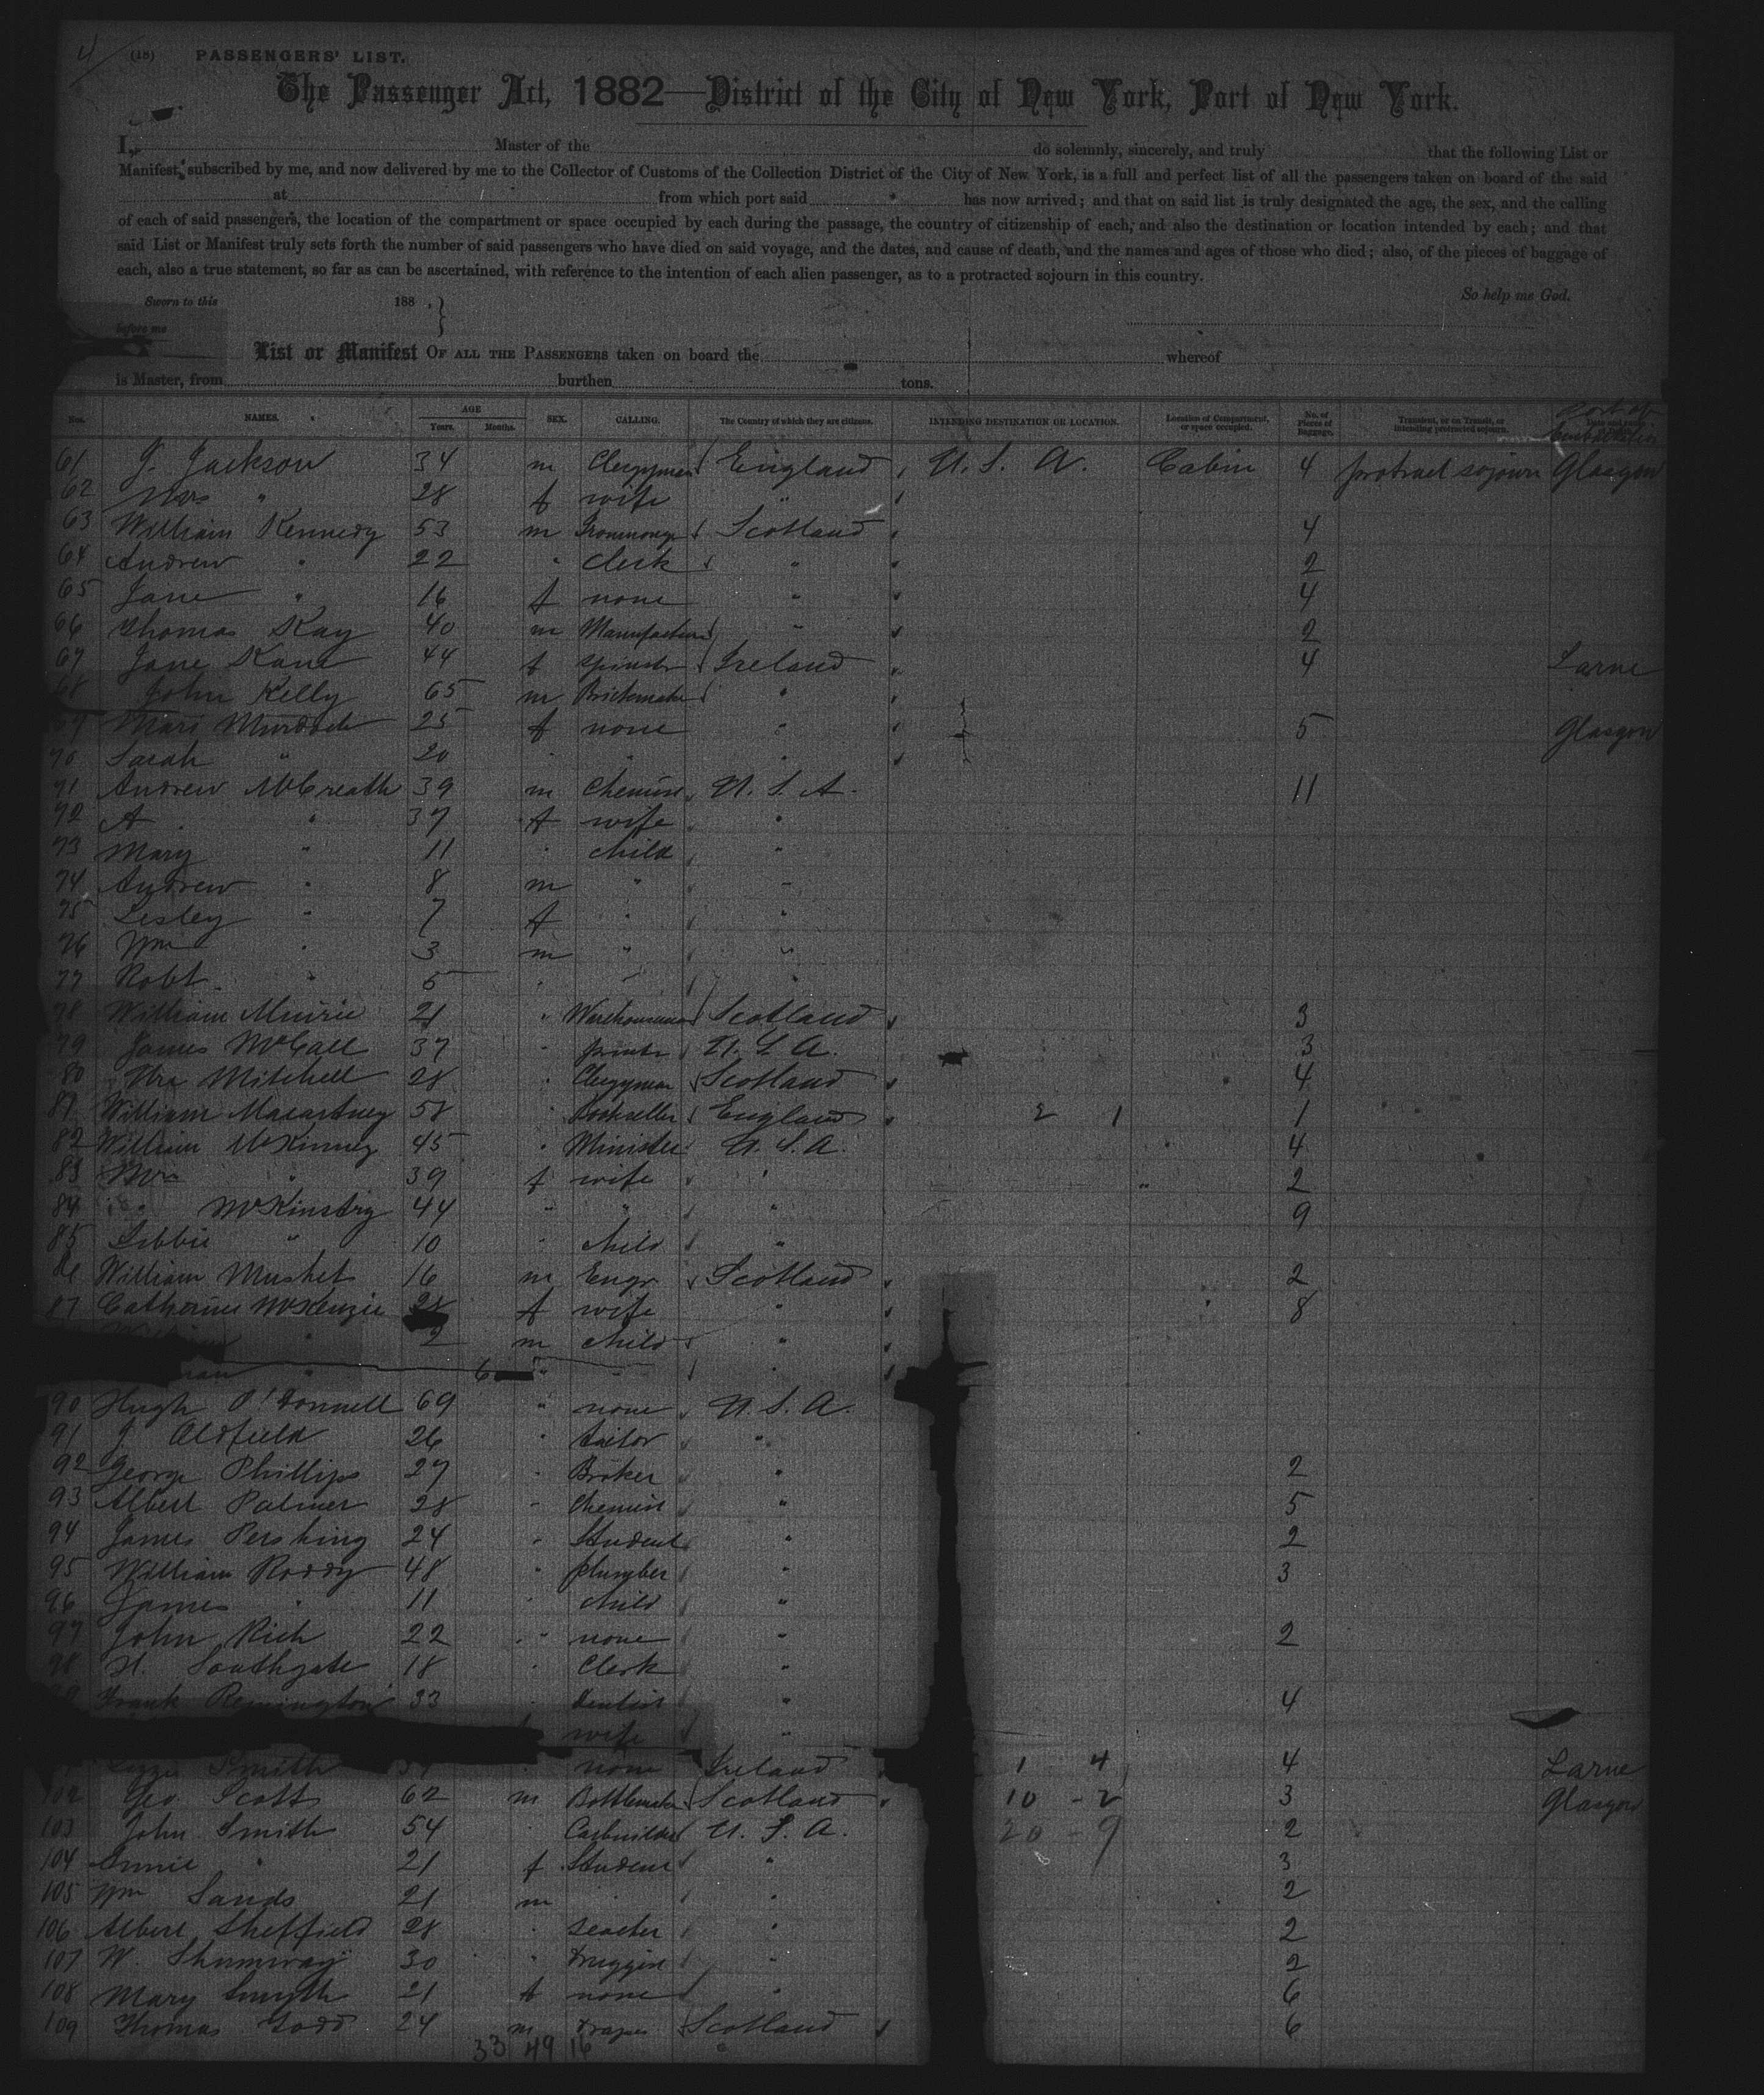 4
(18) PASSENGERS' LIST.
The Passenger Act, 1882—District of the City of New York, Port of New York.
I, Master of the do solemnly, sincerely, and truly that the following List or
Manifest, subscribed by me, and now delivered by me to the Collector of Customs of the Collection District of the City of New York, is a full and perfect list of all the passengers taken on board of the said
at from which port said has now arrived; and that on said list is truly designated the age, the sex, and the calling
of each of said passengers, the location of the compartment or space occupied by each during the passage, the country of citizenship of each, and also the destination or location intended by each; and that
said List or Manifest truly sets forth the number of said passengers who have died on said voyage, and the dates, and cause of death, and the names and ages of those who died; also, of the pieces of baggage of
each, also a true statement, so far as can be ascertained, with reference to the intention of each alien passenger, as to a protracted sojourn in this country.
So help me God.
Sworn to this 188 .
before me
List or Manifest OF ALL THE PASSENGERS taken on board the whereof
is Master, from burthen tons.
Nos. NAMES. AGE Years. Months. SEX. CALLING. The Country of which they are citizens. INTENDING DESTINATION OR LOCATION. Location of Compartment, or space occupied. No. of Pieces of Baggage. Transient, or on Transit, or intending protracted sojourn. Port of Embarkation
61 J. Jackson 34 m Clergyman England U. S. A. Cabin 4 protract sojourn Glasgow
62 Mrs " 28 f wife "
63 William Kennedy 53 m Ironmonger Scotland 4
64 Andrew " 22 " Clerk " 2
65 Jane " 16 f none " 4
66 Thomas Kay 40 m Manufacturer " 2
67 Jane Kane 44 f Spinster Ireland 4 Larne
68 John Kelly 65 m Brickmaker "
69 Mary Murdoch 25 f none " 5 Glasgow
70 Sarah " 20 " " "
71 Andrew McCreath 39 m Chemist U. S. A. 11
72 A " 37 f wife "
73 Mary " 11 " child "
74 Andrew " 8 m " "
75 Lesley " 7 f " "
76 Wm " 3 m " "
77 Robt. " 5 " " "
78 William Muirie 21 " Warehouseman Scotland 3
79 James McCall 37 " printer U. S. A. 3
80 Mitchell 28 " Clergyman Scotland 4
81 William Macartney 58 " Bookseller England 2 1 1
82 William McKinney 45 " Minister U. S. A. 4
83 Mrs " 39 f wife " 2
84 " McKinstry 44 " " " 9
85 Libbie " 10 " child "
86 William Mushet 16 m Engr. Scotland 2
87 Catherine McKenzie 28 f wife " 8
William " 2 m child "
" 6 " " "
90 Hugh O'Donnell 69 " none U. S. A.
91 J Oldfield 26 " tailor "
92 George Phillips 27 " Broker " 2
93 Albert Palmer 28 " Chemist " 5
94 James Pershing 24 " Student " 2
95 William Roddy 48 " plumber " 3
96 James " 11 " child "
97 John Rich 22 " none " 2
98 H. Southgate 18 " Clerk "
99 Frank Remington 33 " Dentist " 4
wife "
Smith " none Ireland 1 4 4 Larne
102 Geo Scott 62 m Bottlemaker Scotland 10 - 2 3 Glasgow
103 John Smith 54 " Carbuilder U. S. A. 20 - 9 2
104 Annie " 21 f Student " 3
105 Wm Sands 21 m " " 2
106 Albert Sheffield 28 " teacher " 2
107 W. Shumway 30 " Druggist " 2
108 Mary Smyth 21 f none " 6
109 Thomas Todd 24 m Draper Scotland 6
33 49 16